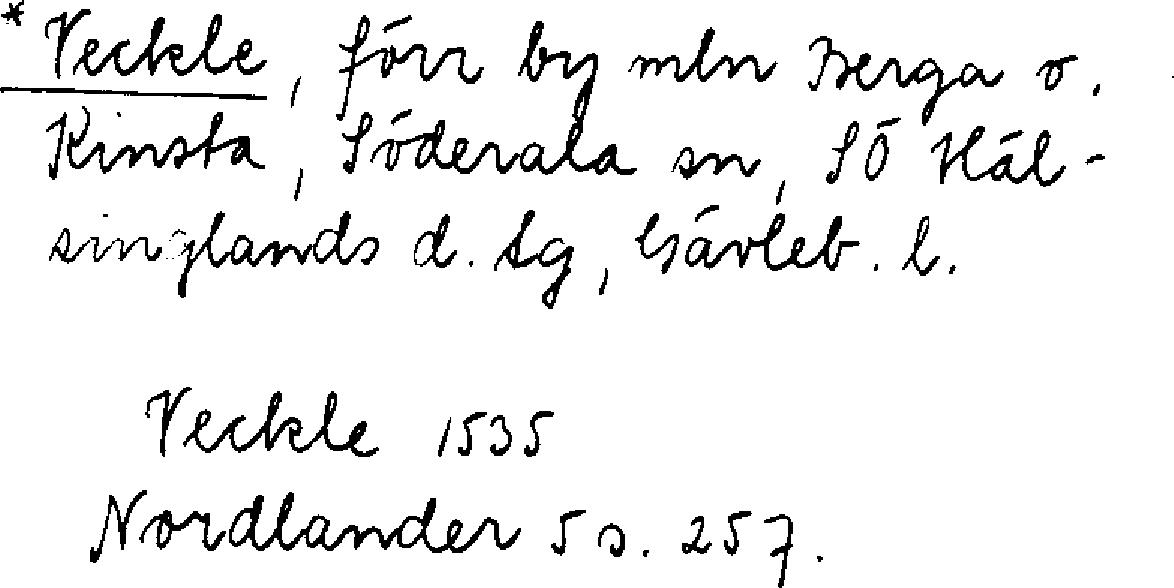 * Veckle, förr by mln Berga o.
Kinsta, Söderala sn, SÖ Häl-
singlands d. sg, Gävleb. l.
Veckle 1535
Nordlander 5 s. 257.